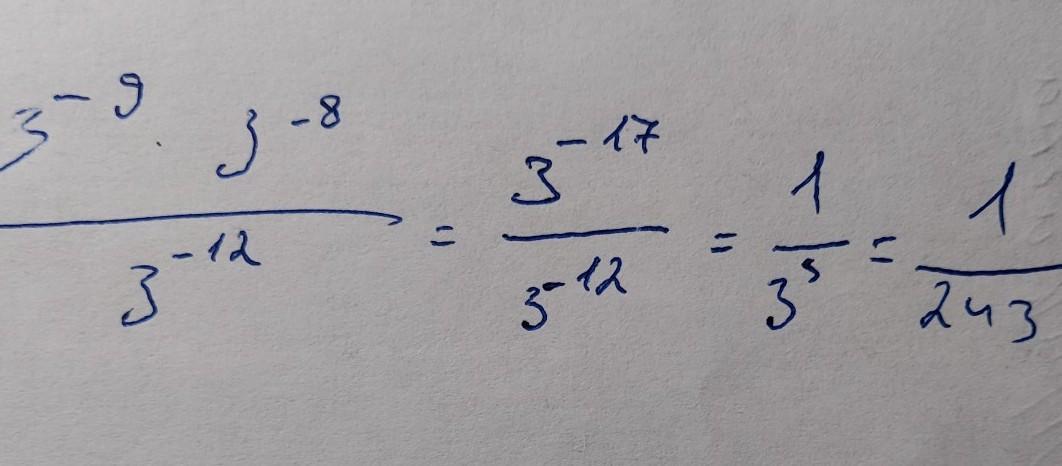 3⁻⁹ · 3⁻⁸ / 3⁻¹² = 3⁻¹⁷ / 3⁻¹² = 1 / 3⁵ = 1 / 243